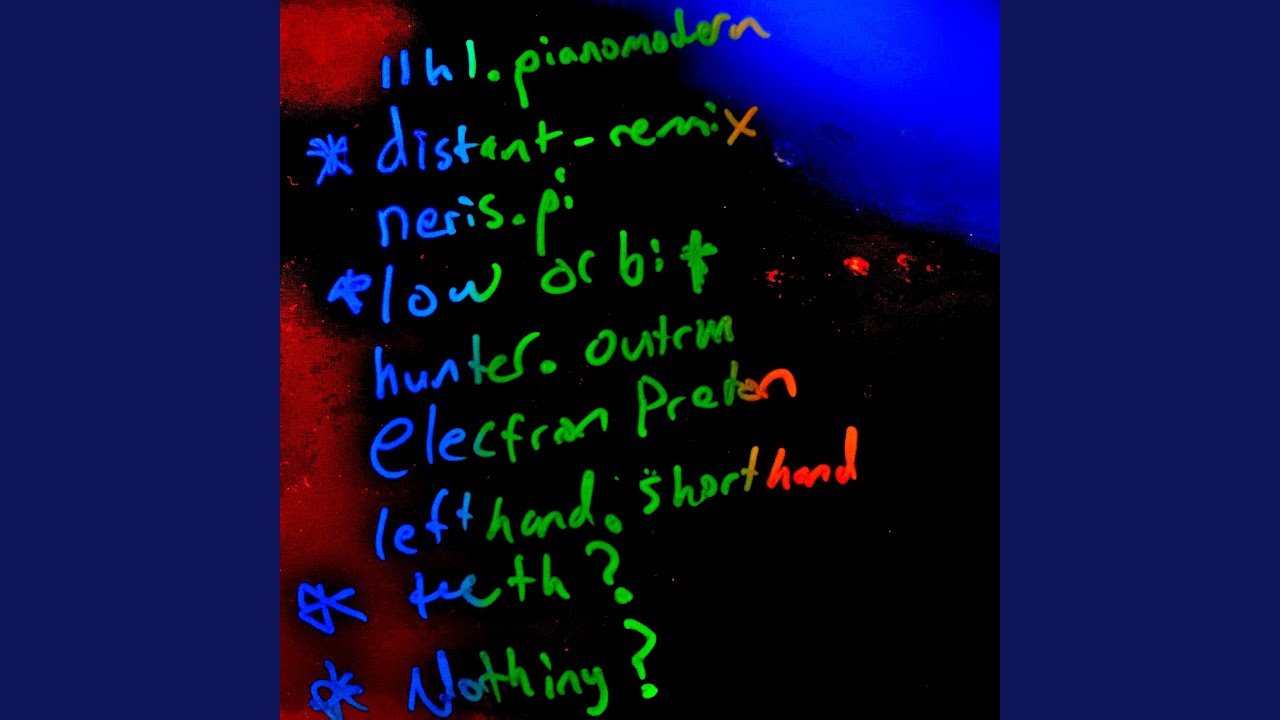 11h1.pianomodern
* distant-remix
neris.pi
* low orbi*
hunter. outrm
electron Preton
lefthand. shorthand
* teeth?
* Nothing?